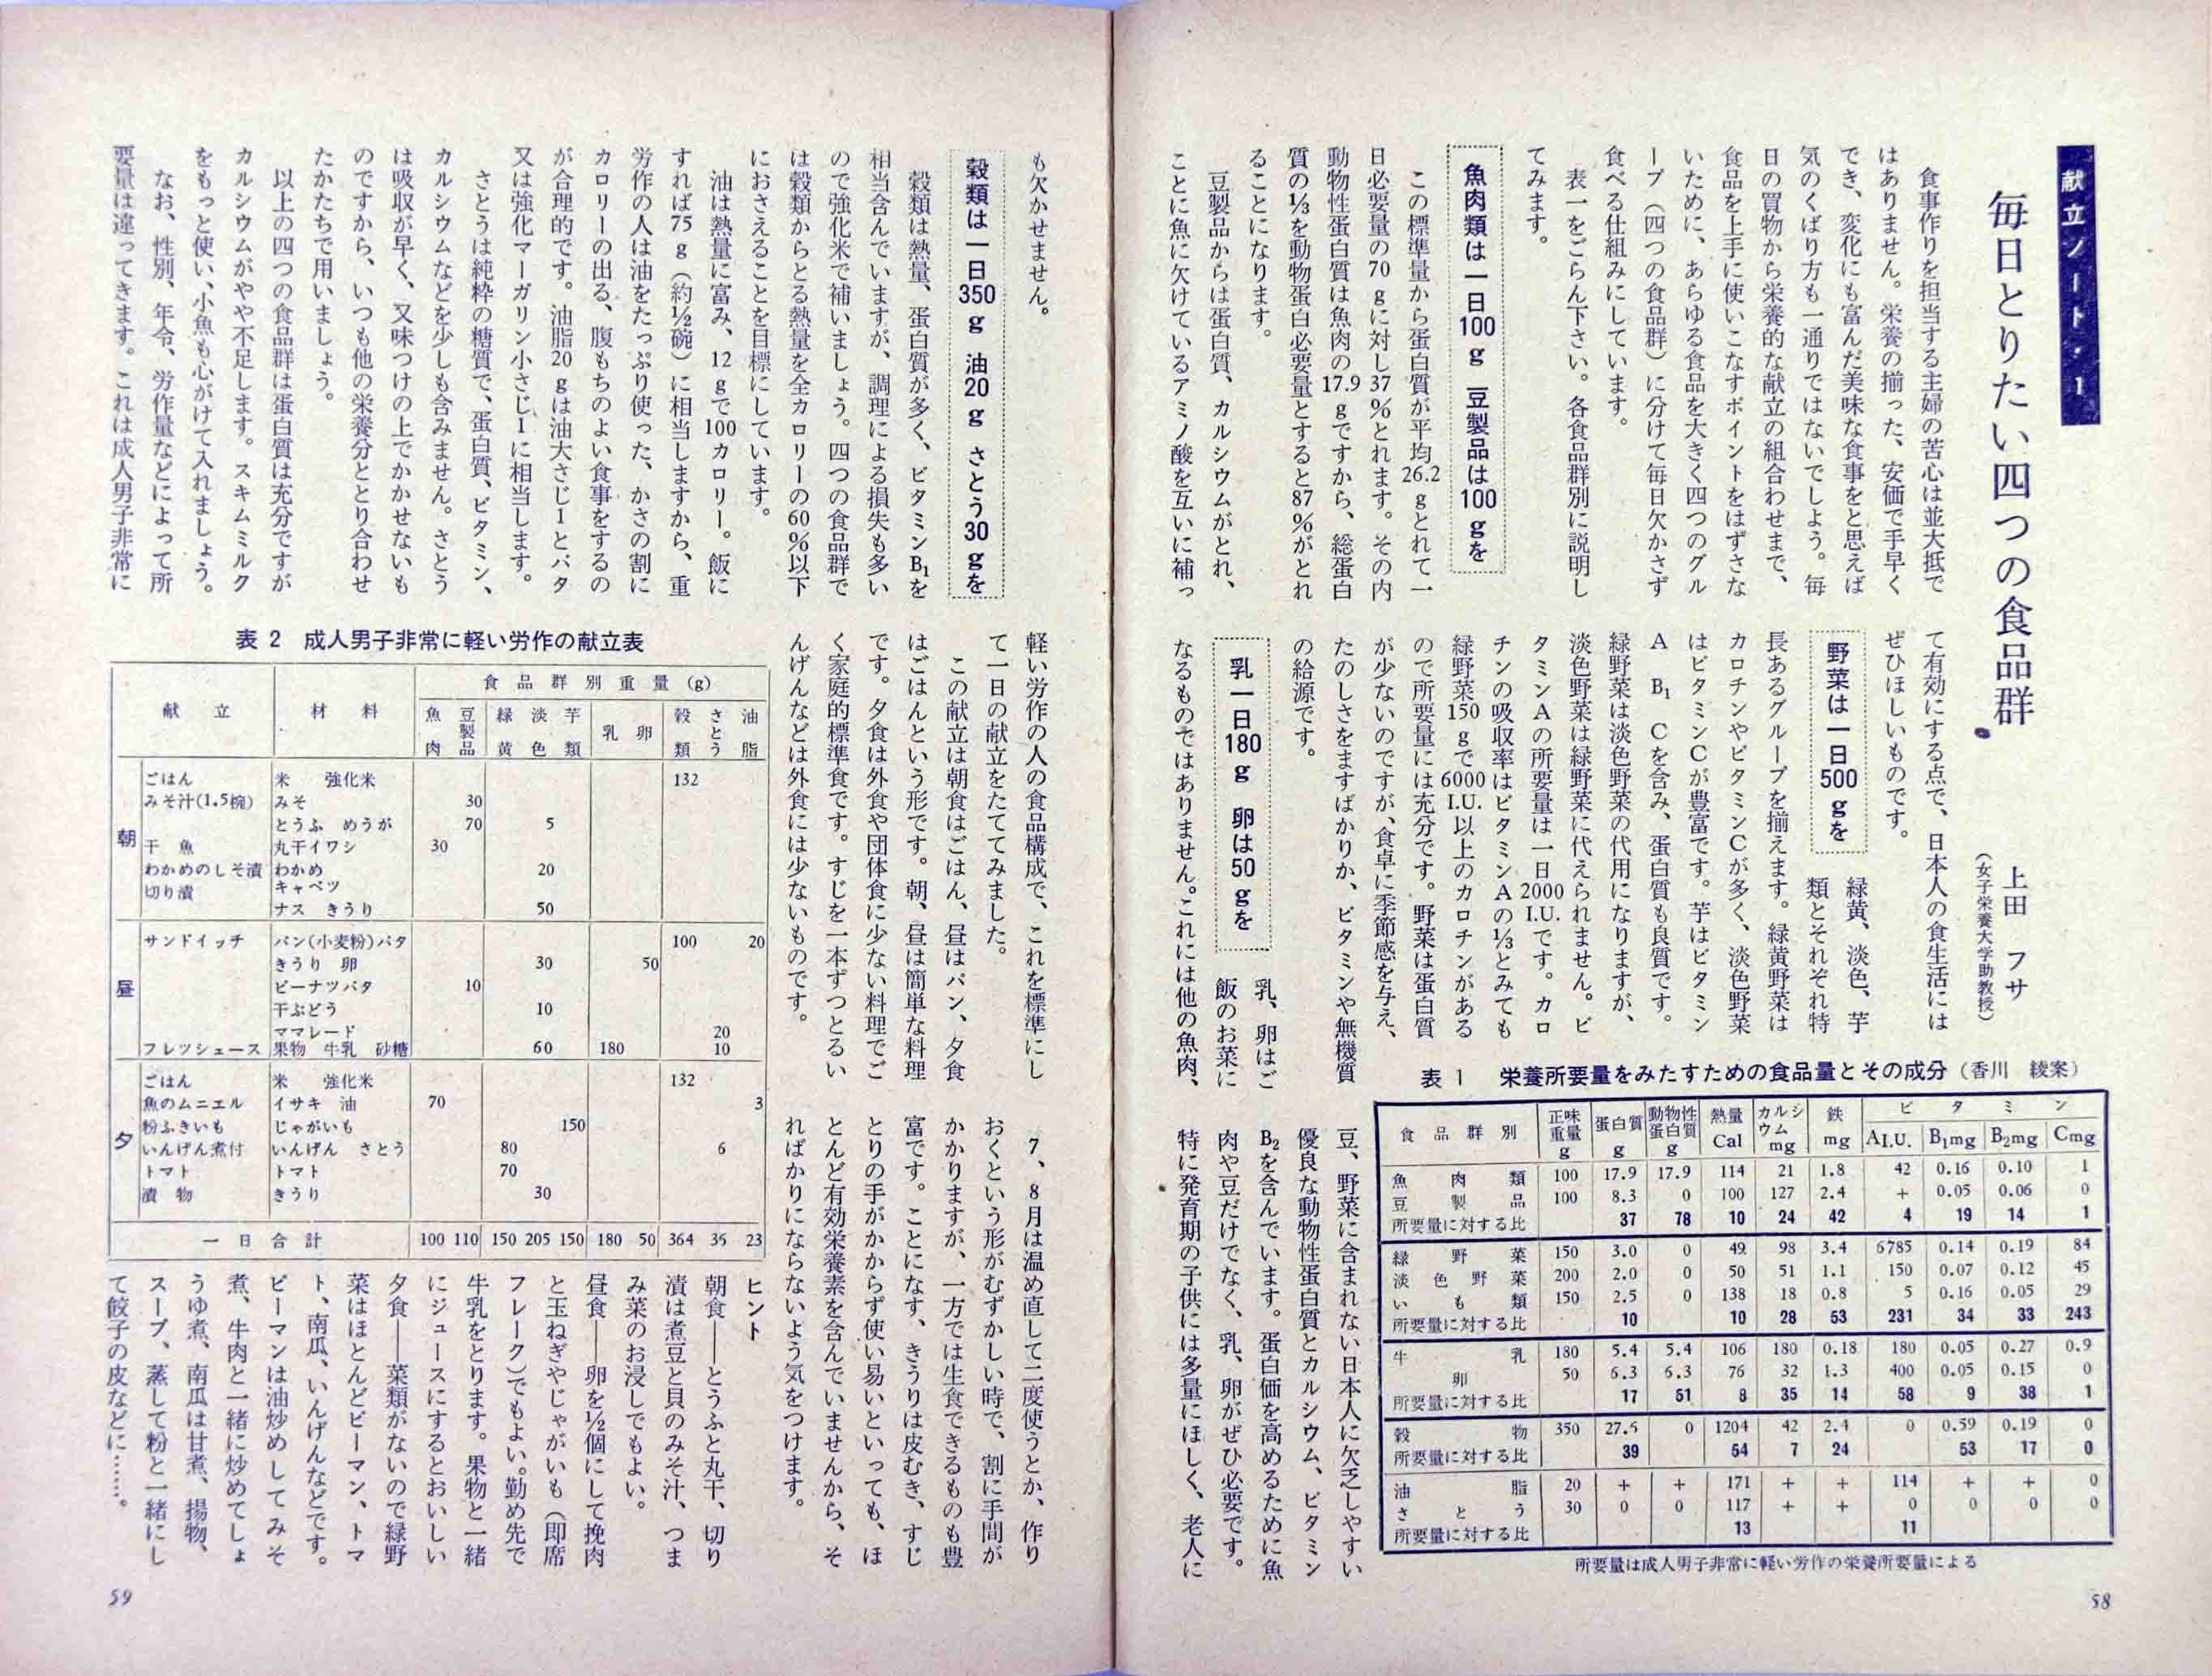 献立ノート・1
毎日とりたい四つの食品群
上田　フサ
（女子栄養大学助教授）
　食事作りを担当する主婦の苦心は並大抵で
はありません。栄養の揃った、安価で手早く
でき、変化にも富んだ美味な食事をと思えば
気のくばり方も一通りではないでしよう。毎
日の買物から栄養的な献立の組合わせまで、
食品を上手に使いこなすポイントをはずさな
いために、あらゆる食品を大きく四つのグル
ープ（四つの食品群）に分けて毎日欠かさず
食べる仕組みにしています。
　表一をごらん下さい。各食品群別に説明し
てみます。
魚肉類は一日100g　豆製品は100gを
　この標準量から蛋白質が平均26.2gとれて一
日必要量の70gに対し37%とれます。その内
動物性蛋白質は魚肉の17.9gですから、総蛋白
質の⅓を動物蛋白必要量とすると87%がとれ
ることになります。
　豆製品からは蛋白質、カルシウムがとれ、
ことに魚に欠けているアミノ酸を互いに補っ
て有効にする点で、日本人の食生活には
ぜひほしいものです。
野菜は一日500gを
緑黄、淡色、芋
類とそれぞれ特
長あるグループを揃えます。緑黄野菜は
カロチンやビタミンCが多く、淡色野菜
はビタミンCが豊富です。芋はビタミン
A　B₁　Cを含み、蛋白質も良質です。
緑野菜は淡色野菜の代用になりますが、
淡色野菜は緑野菜に代えられません。ビ
タミンAの所要量は一日2000I.U.です。カロ
チンの吸収率はビタミンAの⅓とみても
緑野菜150gで6000I.U.以上のカロチンがある
ので所要量には充分です。野菜は蛋白質
が少ないのですが、食卓に季節感を与え、
たのしさをますばかりか、ビタミンや無機質
の給源です。
乳一日180g　卵は50gを
乳、卵はご
飯のお菜に
なるものではありません。これには他の魚肉、
豆、野菜に含まれない日本人に欠乏しやすい
優良な動物性蛋白質とカルシウム、ビタミン
B₂を含んでいます。蛋白価を高めるために魚
肉や豆だけでなく、乳、卵がぜひ必要です。
特に発育期の子供には多量にほしく、老人に
表 1　栄養所要量をみたすための食品量とその成分（香川　綾案）
食品群別　正味重量g　蛋白質g　動物性蛋白質g　熱量Cal　カルシウムmg　鉄mg　ビタミン　AI.U.　B₁mg　B₂mg　Cmg
魚肉類　100　17.9　17.9　114　21　1.8　42　0.16　0.10　1
豆製品　100　8.3　0　100　127　2.4　+　0.05　0.06　0
所要量に対する比　37　78　10　24　42　4　19　14　1
緑野菜　150　3.0　0　49　98　3.4　6785　0.14　0.19　84
淡色野菜　200　2.0　0　50　51　1.1　150　0.07　0.12　45
いも類　150　2.5　0　138　18　0.8　5　0.16　0.05　29
所要量に対する比　10　10　28　53　231　34　33　243
牛乳　180　5.4　5.4　106　180　0.18　180　0.05　0.27　0.9
卵　50　6.3　6.3　76　32　1.3　400　0.05　0.15　0
所要量に対する比　17　51　8　35　14　58　9　38　1
穀物　350　27.5　0　1204　42　2.4　0　0.59　0.19　0
所要量に対する比　39　54　7　24　53　17　0
油脂　20　+　+　171　+　+　114　+　+　0
さとう　30　0　0　117　+　+　0　0　0　0
所要量に対する比　13　11
所要量は成人男子非常に軽い労作の栄養所要量による
58
も欠かせません。
穀類は一日350g　油20g　さとう30gを
　穀類は熱量、蛋白質が多く、ビタミンB₁を
相当含んでいますが、調理による損失も多い
ので強化米で補いましょう。四つの食品群で
は穀類からとる熱量を全カロリーの60%以下
におさえることを目標にしています。
　油は熱量に富み、12gで100カロリー。飯に
すれば75g（約½碗）に相当しますから、重
労作の人は油をたっぷり使った、かさの割に
カロリーの出る、腹もちのよい食事をするの
が合理的です。油脂20gは油大さじ1とバタ
又は強化マーガリン小さじ1に相当します。
　さとうは純粋の糖質で、蛋白質、ビタミン、
カルシウムなどを少しも含みません。さとう
は吸収が早く、又味つけの上でかかせないも
のですから、いつも他の栄養分ととり合わせ
たかたちで用いましょう。
　以上の四つの食品群は蛋白質は充分ですが
カルシウムがやや不足します。スキムミルク
をもっと使い、小魚も心がけて入れましょう。
　なお、性別、年令、労作量などによって所
要量は違ってきます。これは成人男子非常に
軽い労作の人の食品構成で、これを標準にし
て一日の献立をたててみました。
　この献立は朝食はごはん、昼はパン、夕食
はごはんという形です。朝、昼は簡単な料理
です。夕食は外食や団体食に少ない料理でご
く家庭的標準食です。すじを一本ずつとるい
んげんなどは外食には少ないものです。
　7、8月は温め直して二度使うとか、作り
おくという形がむずかしい時で、割に手間が
かかりますが、一方では生食できるものも豊
富です。ことになす、きうりは皮むき、すじ
とりの手がかからず使い易いといっても、ほ
とんど有効栄養素を含んでいませんから、そ
ればかりにならないよう気をつけます。
ヒント
朝食――とうふと丸干、切り
漬は煮豆と貝のみそ汁、つま
み菜のお浸しでもよい。
昼食――卵を½個にして挽肉
と玉ねぎやじゃがいも（即席
フレーク）でもよい。勤め先で
牛乳をとります。果物と一緒
にジュースにするとおいしい
夕食――菜類がないので緑野
菜はほとんどピーマン、トマ
ト、南瓜、いんげんなどです。
ピーマンは油炒めしてみそ
煮、牛肉と一緒に炒めてしょ
うゆ煮、南瓜は甘煮、揚物、
スープ、蒸して粉と一緒にし
て餃子の皮などに……。
表 2　成人男子非常に軽い労作の献立表
献立　材料　食品群別重量(g)
魚肉　豆製品　緑黄　淡色　芋類　乳　卵　穀類　さとう　油脂
朝
ごはん　米　強化米　132
みそ汁(1.5椀)　みそ　30
とうふ　めうが　70　5
干魚　丸干イワシ　30
わかめのしそ漬　わかめ　20
切り漬　キャベツ
ナス　きうり　50
昼
サンドイッチ　パン(小麦粉)バタ　100　20
きうり　卵　30　50
ピーナツバタ　10
干ぶどう　10
ママレード　20
フレツシェース　果物　牛乳　砂糖　60　180　10
夕
ごはん　米　強化米　132
魚のムニエル　イサキ　油　70　3
粉ふきいも　じゃがいも　150
いんげん煮付　いんげん　さとう　80　6
トマト　トマト　70
漬物　きうり　30
一日合計　100　110　150　205　150　180　50　364　36　23
59